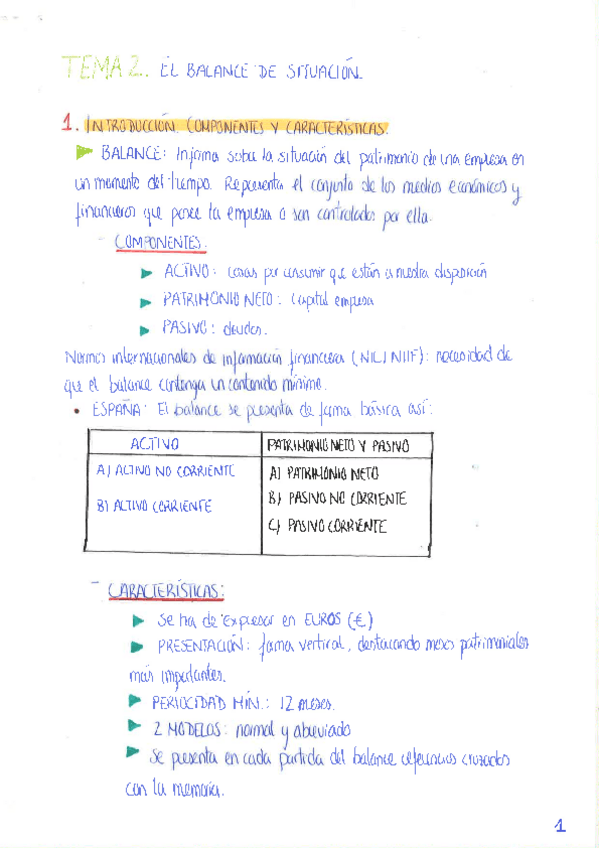 TEMA 2. EL BALANCE DE SITUACIÓN.
1. INTRODUCCIÓN. COMPONENTES Y CARACTERÍSTICAS.
BALANCE: Informa sobre la situación del patrimonio de una empresa en
un momento del tiempo. Representa el conjunto de los medios económicos y
financieros que posee la empresa o son controlados por ella.
- COMPONENTES:
ACTIVO: cosas por consumir que están a nuestra disposición
PATRIMONIO NETO: capital empresa
PASIVO: deudas.
Normas internacionales de información financiera (NIC/NIIF): necesidad de
que el balance contenga un contenido mínimo.
• ESPAÑA: El balance se presenta de forma básica así:
ACTIVO PATRIMONIO NETO Y PASIVO
A) ACTIVO NO CORRIENTE A) PATRIMONIO NETO
B) ACTIVO CORRIENTE B) PASIVO NO CORRIENTE
C) PASIVO CORRIENTE
- CARACTERÍSTICAS:
Se ha de expresar en EUROS (€)
PRESENTACIÓN: forma vertical, destacando masas patrimoniales
más importantes.
PERIOCIDAD MÍN.: 12 meses.
2 MODELOS: normal y abreviado
Se presenta en cada partida del balance referencias cruzadas
con la memoria.
1